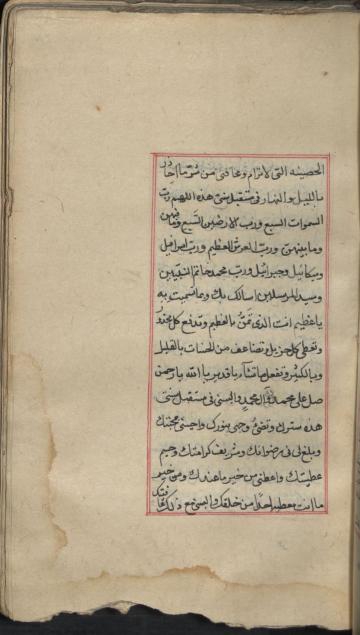 الحصينه التی لاترام وعافنی من شر ما احاذر
بالليل والنهار فی مستقبل سنتی هذه اللهم رب
السموات السبع ورب الارضين السبع وما فيهن
وما بينهن ورب العرش العظيم ورب اسرافيل
وميكائيل وجبرائيل ورب محمد خاتم النبيين
وسيد المرسلين اسالك بك وبما سميت به
ياعظيم انت الذی تمن بالعظيم وتدفع كل محذور
وتعطی كل جزيل وتضاعف من الحسنات بالقليل
وبالكثير وتفعل ما تشآء ياقدير يا الله يا رحمن
صل علی محمد وآل محمد والبسنی فی مستقبل سنتی
هذه سترك ونضئ وجهی بنورك واحينی بمحبتك
وبلغ لی رضوانك وشريف كرامتك وجسيم
عطيتك واعطنی من خير ما عندك ومن خير
ما انت معطيه احدا من خلقك والبسنی مع ذلك عافيتك